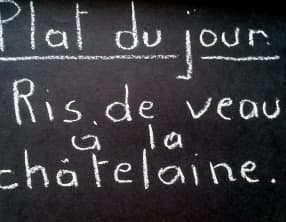 Plat du jour
Ris de veau
a la
châtelaine.